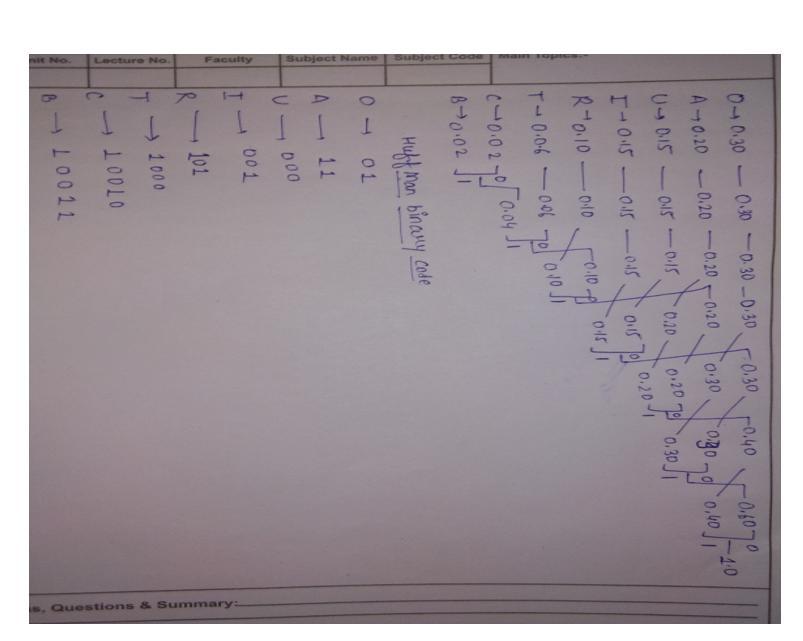 nit No. Lecture No. Faculty Subject Name Subject Code Main Topics:-
O → 0.30 — 0.30 — 0.30 — 0.30 0.30 0.40 0.60 0 — 1.0
A → 0.20 — 0.20 — 0.20 0.20 0.30 0.30 0 0.40 1
U → 0.15 — 0.15 — 0.15 0.20 0.20 0 0.30 1
I → 0.15 — 0.15 — 0.15 0.15 0 0.20 1
R → 0.10 — 0.10 0.10 0 0.15 1
T → 0.06 — 0.06 0 0.10 1
C → 0.02 0 0.04 1
B → 0.02 1
Huffman binary code
O → 01
A — 11
U — 000
I → 001
R — 101
T → 1000
C → 10010
B → 10011
s, Questions & Summary: